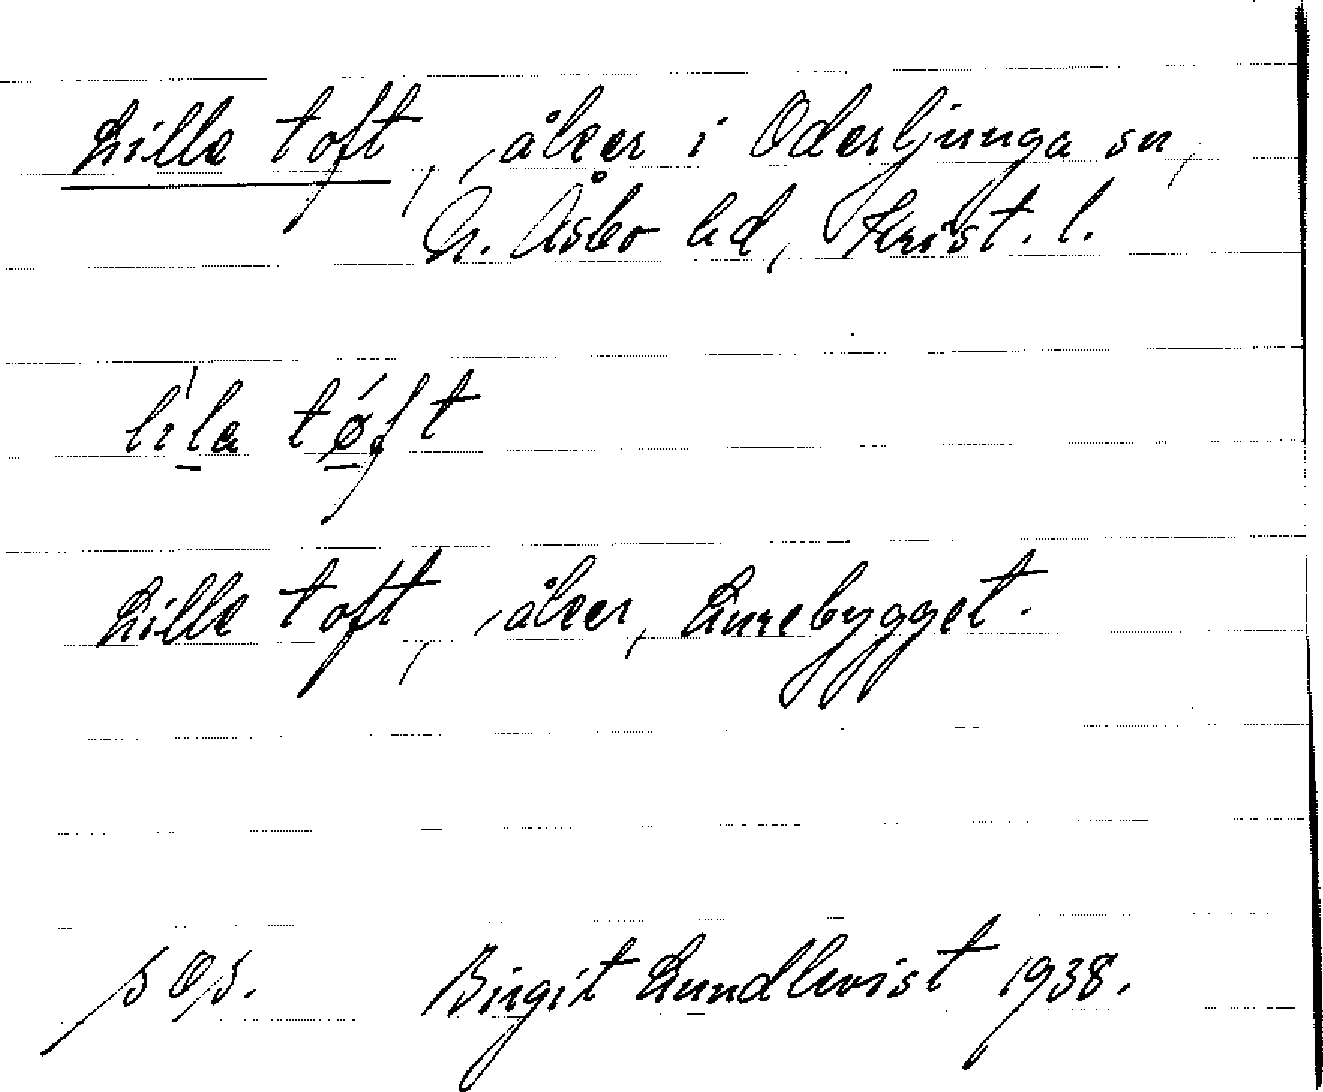 Lille toft, åker i Oderljunga sn,
N. Åsbo hd, Krist. l.
lila tøft
Lille toft, åker, Lurebygget.
Birgit Lundkvist 1938.